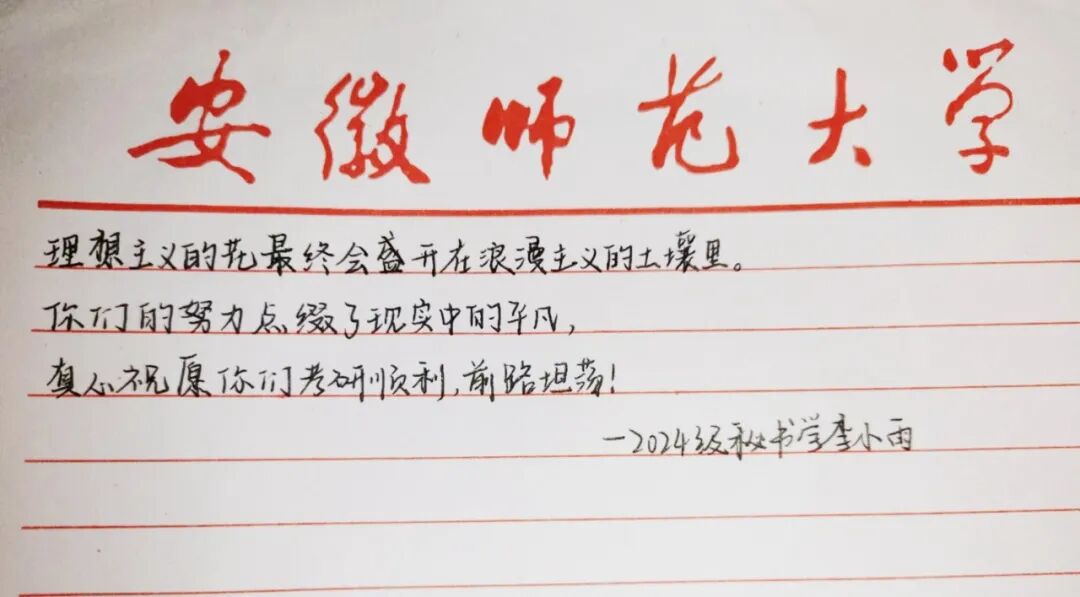 安徽师范大学
理想主义的花最终会盛开在浪漫主义的土壤里。
你们的努力点缀了现实中的平凡，
真心祝愿你们考研顺利，前路坦荡！
—2024级秘书学李小雨